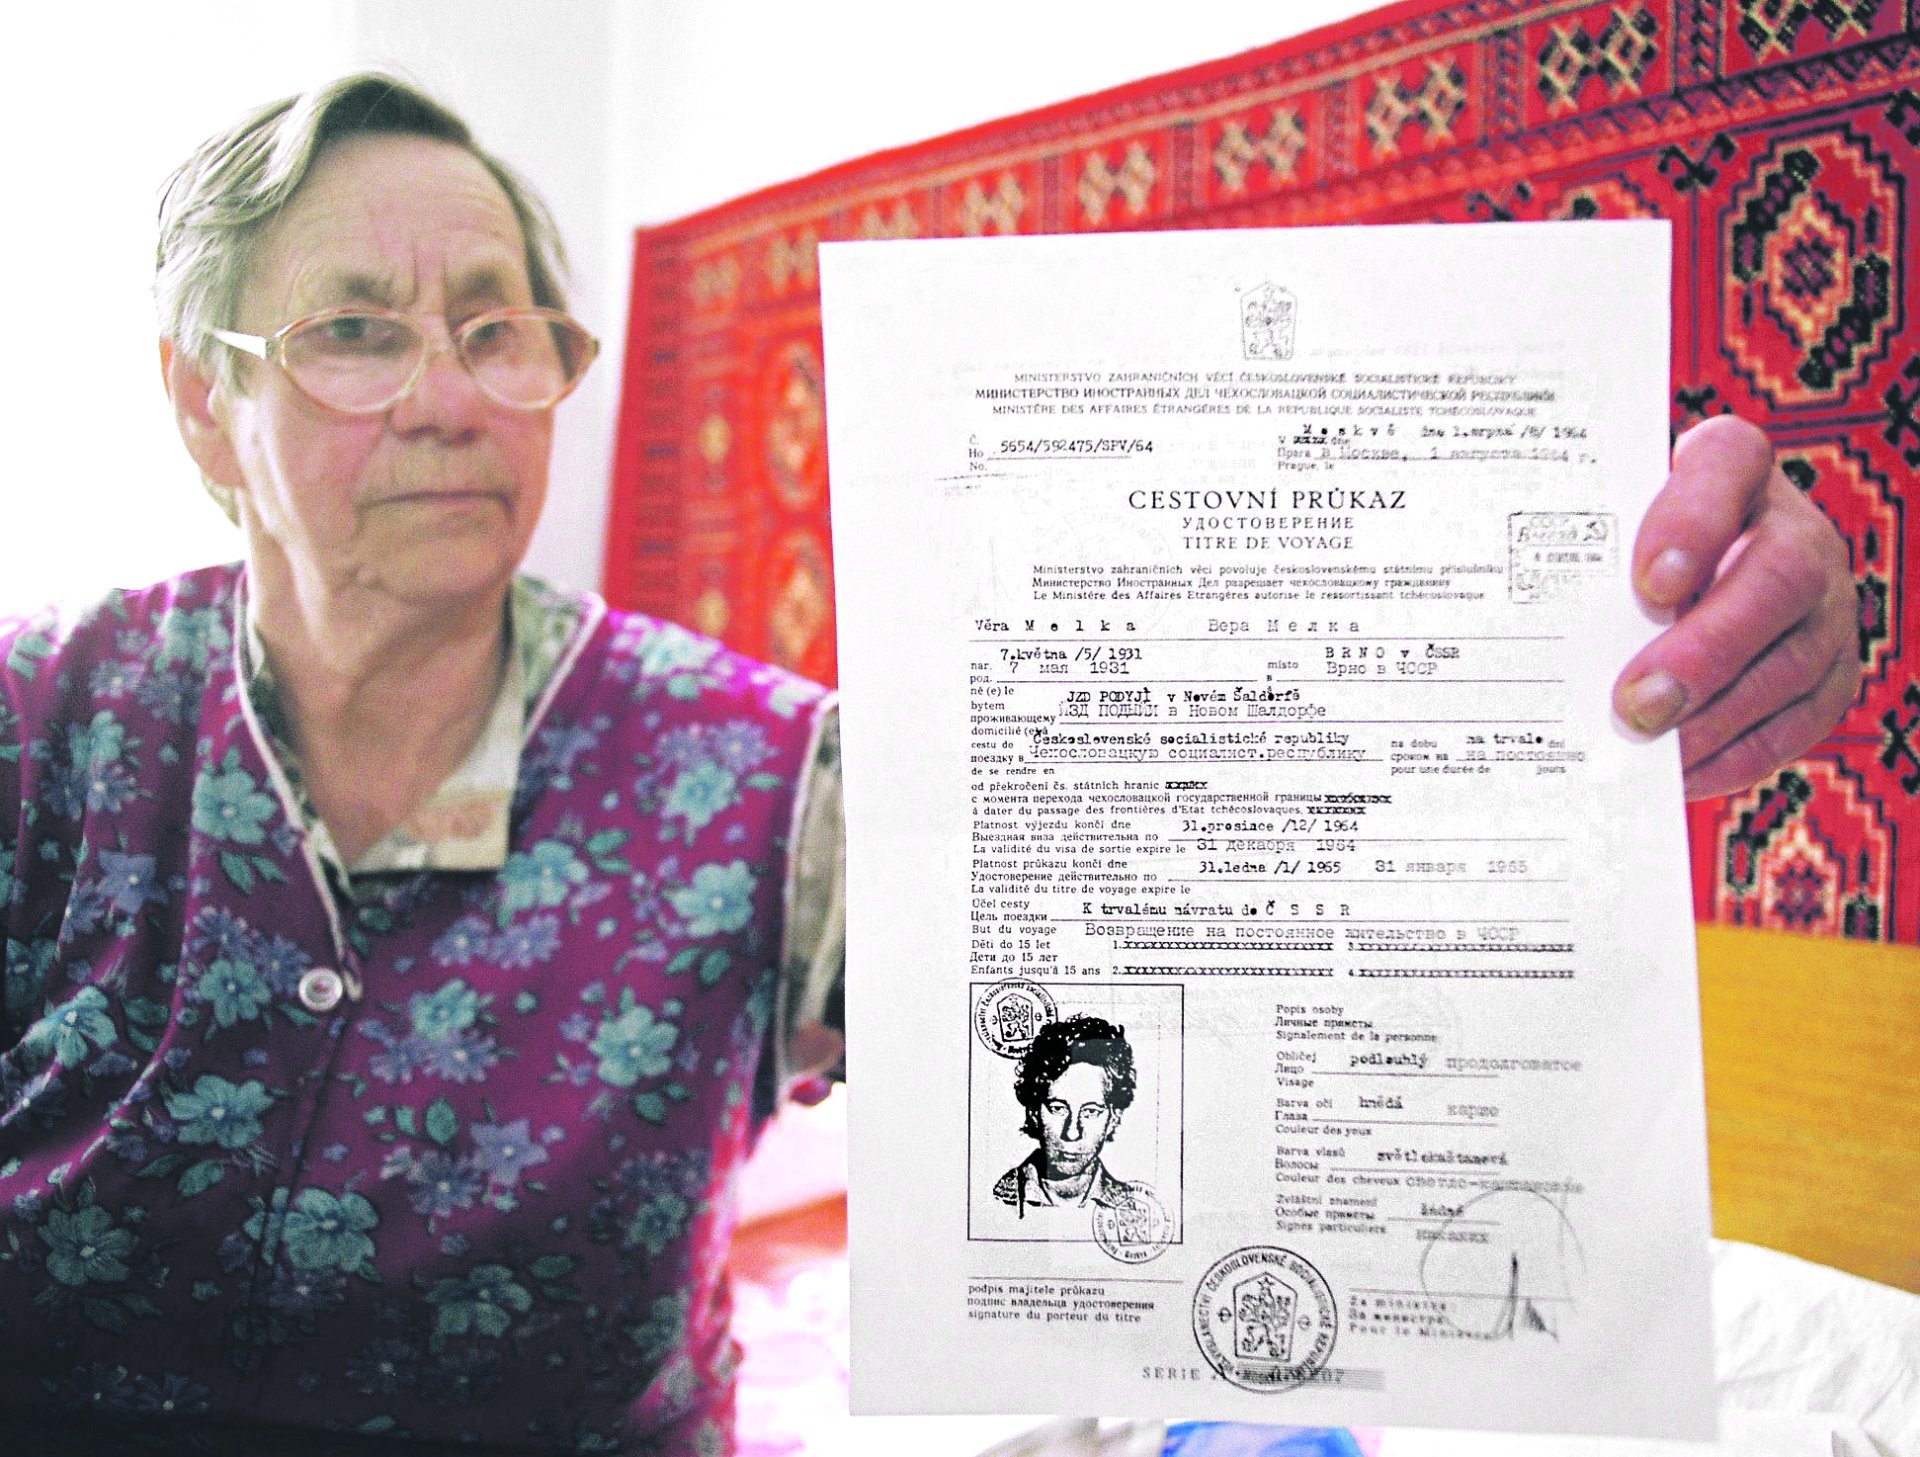 MINISTERSTVO ZAHRANIČNÍCH VĚCÍ ČESKOSLOVENSKÉ SOCIALISTICKÉ REPUBLIKY
МИНИСТЕРСТВО ИНОСТРАННЫХ ДЕЛ ЧЕХОСЛОВАЦКОЙ СОЦИАЛИСТИЧЕСКОЙ РЕСПУБЛИКИ
MINISTÈRE DES AFFAIRES ÉTRANGÈRES DE LA REPUBLIQUE SOCIALISTE TCHÉCOSLOVAQUE
Č.
Но 5654/592475/SPV/64
No.
M o s k v ě dne 1.srpna /8/ 1964
V xxxx dne
Прага в Москве, 1 августа 1964 г.
Prague, le
CESTOVNÍ PRŮKAZ
УДОСТОВЕРЕНИЕ
TITRE DE VOYAGE
СССР
Ministerstvo zahraničních věcí povoluje československému státnímu příslušníku
Министерство Иностранных Дел разрешает чехословацкому гражданину
Le Ministère des Affaires Etrangères autorise le ressortissant tchécoslovaque
Věra M e l k a Вера М е л к а
7.května /5/ 1931 B R N O v ČSSR
nar. 7 мая 1931 místo Брно в ЧССР
род. в
né (e) le à
bytem JZD PODYJÍ v Novém Šaldorfě
проживающему ЙЗД ПОДЫЙИ в Новом Шалдорфе
domicilié (e) à
cestu do Československé socialistické republiky na dobu na trvalo dní
поездку в Чехословацкую социалист.республику сроком на на постоянно
de se rendre en pour une durée de jours
od překročení čs. státních hranic xxxxxx
с момента перехода чехословацкой государственной границы xxxxxxxxx
à dater du passage des frontières d'Etat tchécoslovaques. xxxxxxxx
Platnost výjezdu končí dne 31.prosince /12/ 1964
Выездная виза действительна по
La validité du visa de sortie expire le 31 декабря 1964
Platnost průkazu končí dne 31.ledna /1/ 1965 31 января 1965
Удостоверение действительно по
La validité du titre de voyage expire le
Účel cesty K trvalému návratu do Č S S R
Цель поездки
But du voyage Возвращение на постоянное жительство в ЧССР
Děti do 15 let 1. 3.
Дети до 15 лет
Enfants jusqu'à 15 ans 2. 4.
Popis osoby
Личные приметы
Signalement de la personne
Obličej podlouhlý продолговатое
Лицо
Visage
Barva očí hnědá карие
Глаза
Couleur des yeux
Barva vlasů světlekaštanová
Волосы
Couleur des cheveux светло-каштановые
Zvláštní znamení
Особые приметы žádné
Signes particuliers никаких
podpis majitele průkazu
подпись владельца удостоверения
signature du porteur du titre
Za ministra
За министра
Pour le Ministre
VELVYSLANECTVÍ ČESKOSLOVENSKÉ SOCIALISTICKÉ REPUBLIKY
SERIE